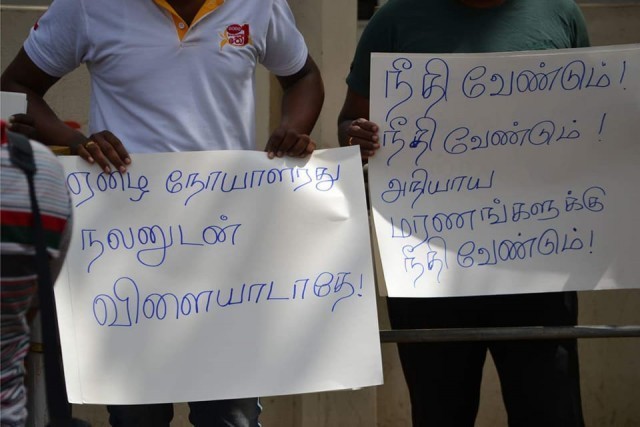 ஏழை நோயாளரது
நலனுடன்
விளையாடாதே!
நீதி வேண்டும்!
நீதி வேண்டும் !
அநியாய
மரணங்களுக்கு
நீதி வேண்டும்!